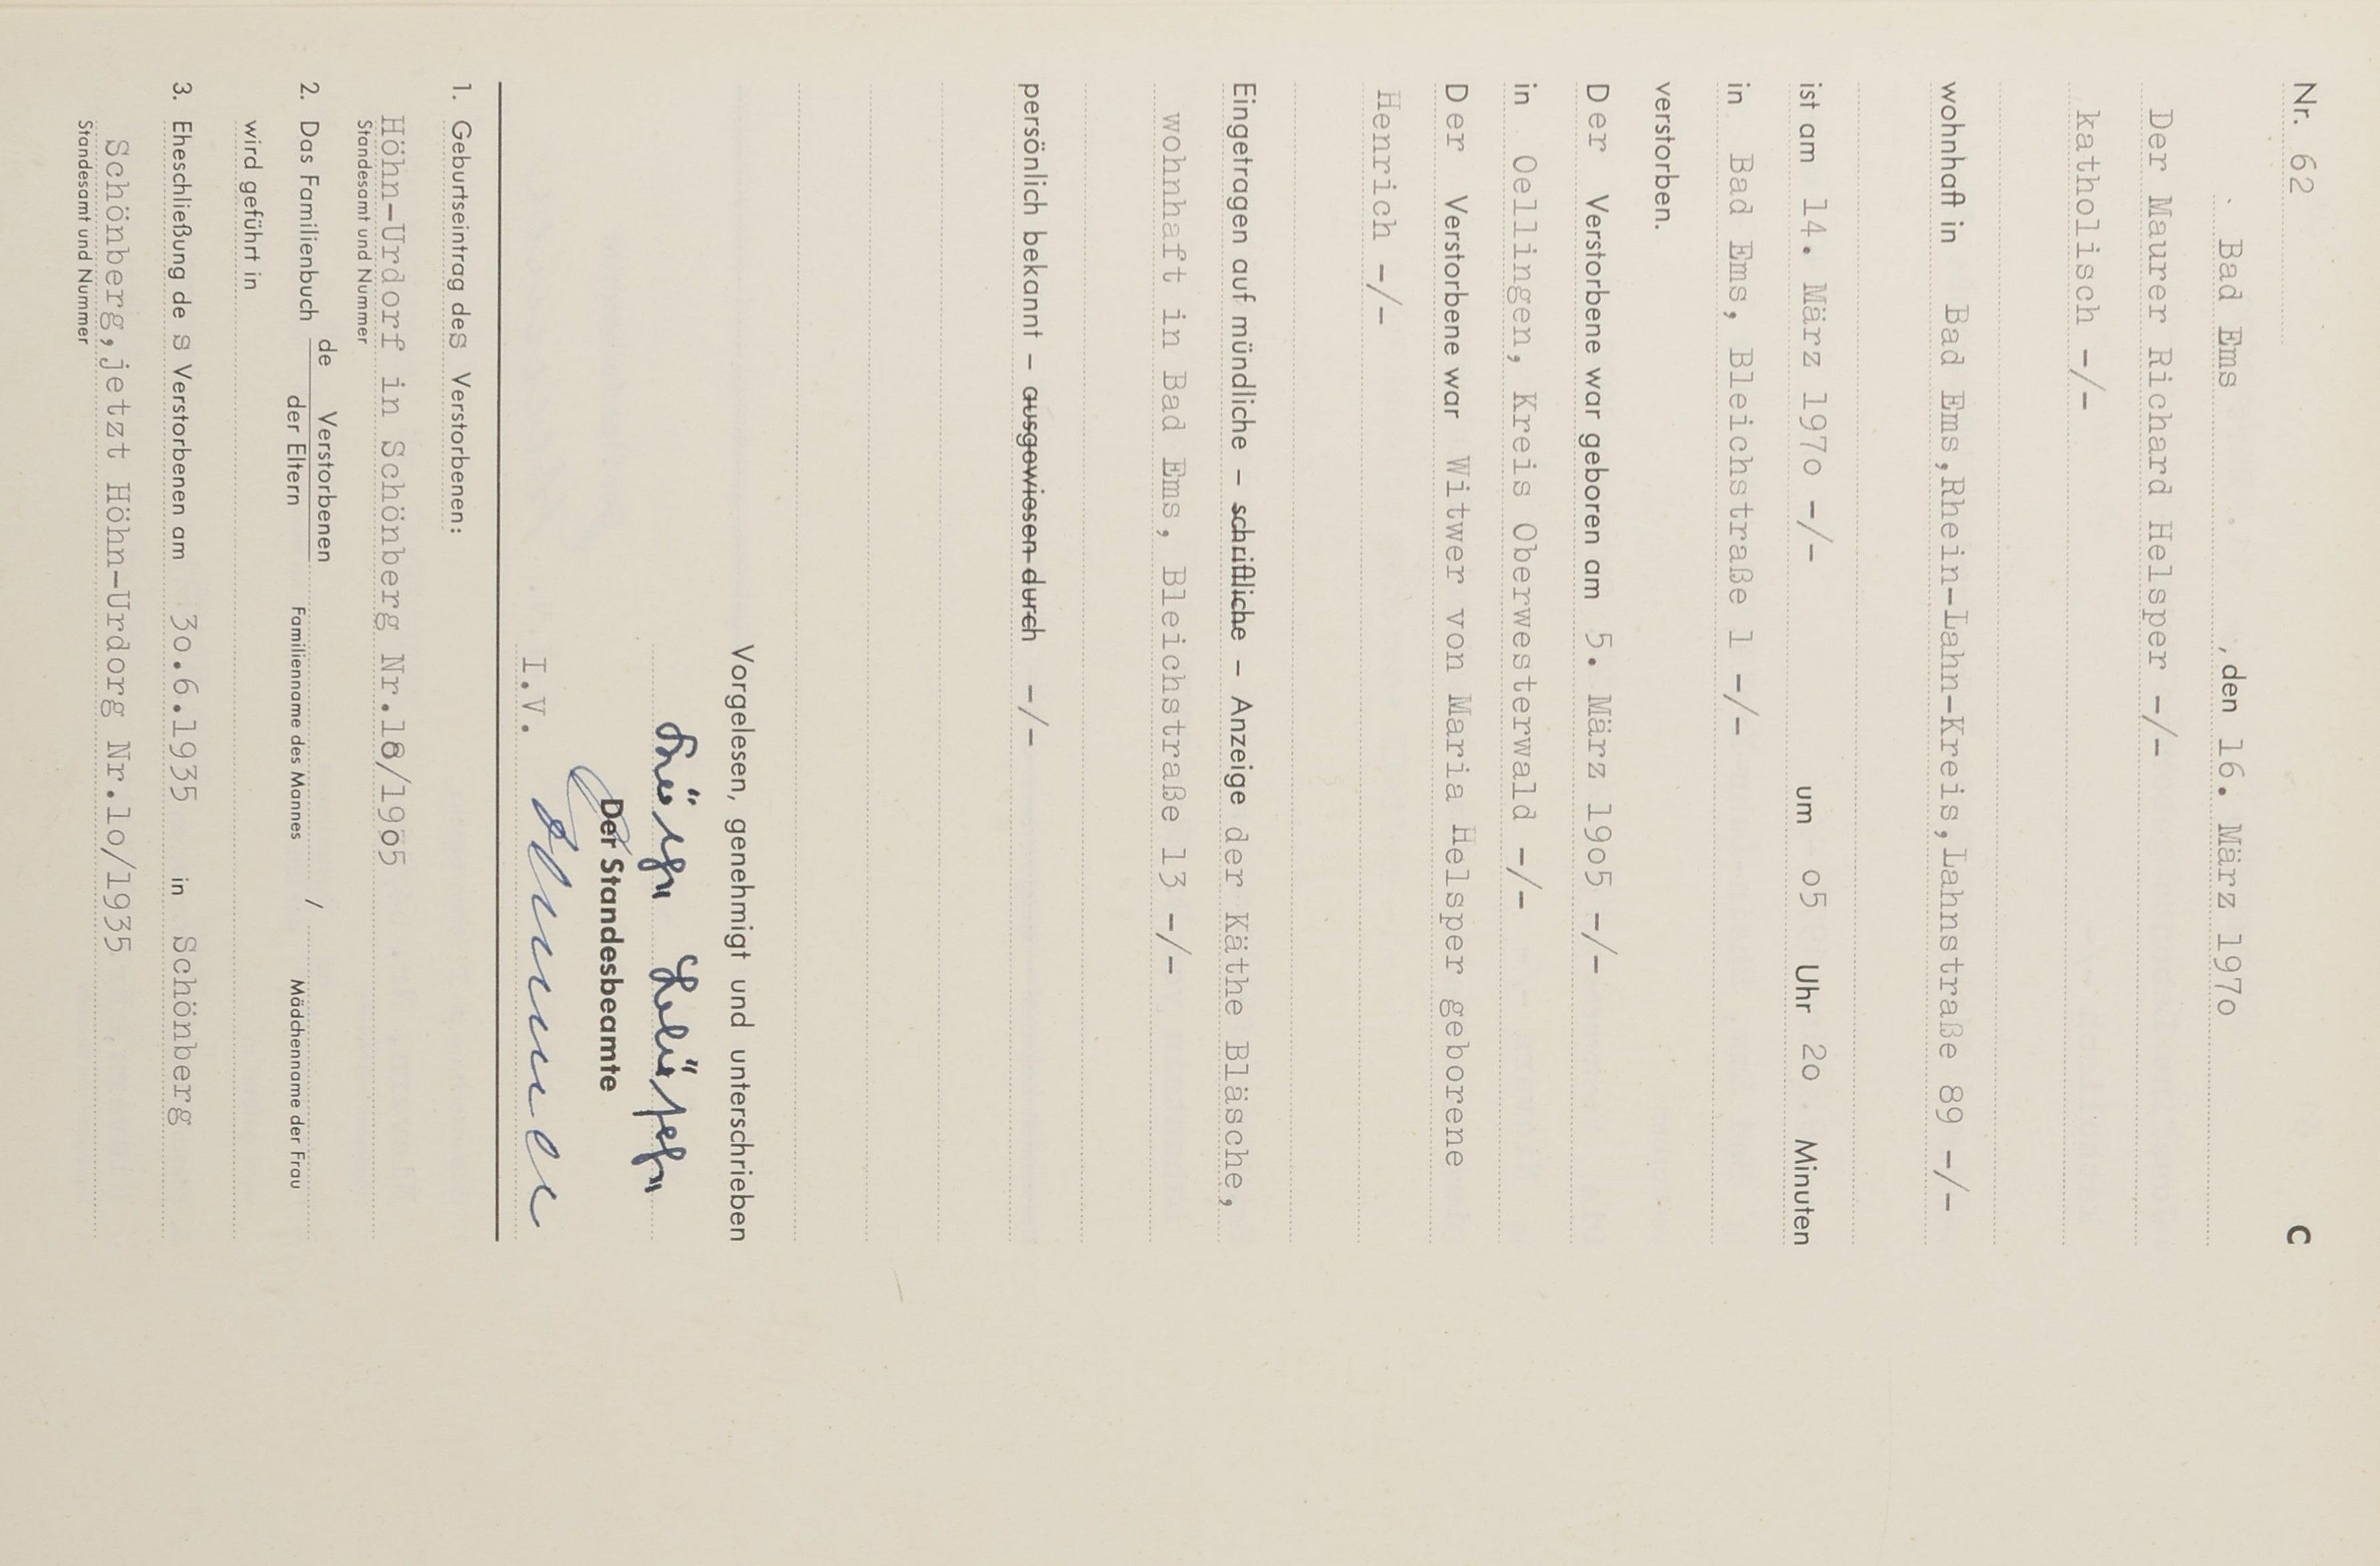 Nr. 62 C
Bad Ems , den 16. März 197o
Der Maurer Richard Helsper -/-
katholisch -/-
wohnhaft in Bad Ems,Rhein-Lahn-Kreis,Lahnstraße 89 -/-
ist am 14. März 197o -/- um o5 Uhr 2o Minuten
in Bad Ems, Bleichstraße 1 -/-
verstorben.
D er Verstorbene war geboren am 5. März 19o5 -/-
in Oellingen, Kreis Oberwesterwald -/-
D er Verstorbene war Witwer von Maria Helsper geborene
Henrich -/-
Eingetragen auf mündliche – schriftliche – Anzeige der Käthe Bläsche,
wohnhaft in Bad Ems, Bleichstraße 13 -/-
persönlich bekannt – ausgewiesen durch -/-
Vorgelesen, genehmigt und unterschrieben
Der Standesbeamte
I.V.
1. Geburtseintrag des Verstorbenen:
Höhn-Urdorf in Schönberg Nr.18/19o5
Standesamt und Nummer
2. Das Familienbuch de Verstorbenen /
der Eltern Familienname des Mannes Mädchenname der Frau
wird geführt in
3. Eheschließung de s Verstorbenen am 3o.6.1935 in Schönberg
Schönberg,jetzt Höhn-Urdorg Nr.1o/1935
Standesamt und Nummer